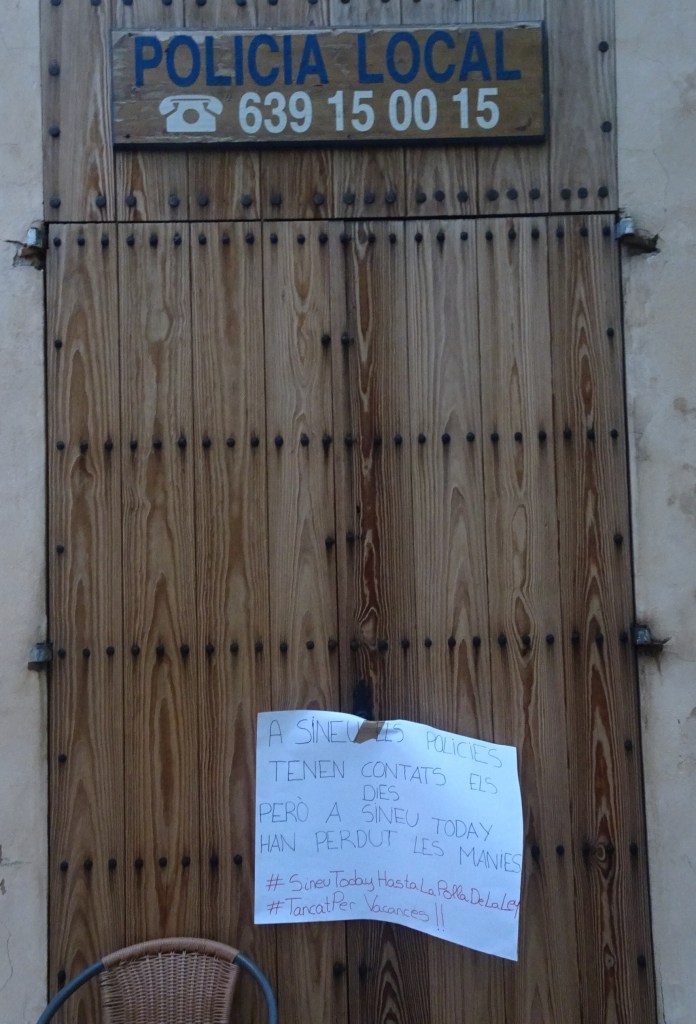 POLICIA LOCAL
639 15 00 15
A SINEU ELS POLICIES
TENEN CONTATS ELS
DIES
PERÒ A SINEU TODAY
HAN PERDUT LES MANIES
# SineuTodayHastaLaPollaDeLaLey
#TancatPer Vacances !!